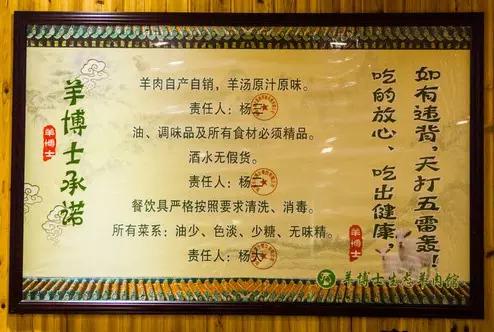 羊博士承诺
羊博士
羊肉自产自销，羊汤原汁原味。
责任人：杨三
油、调味品及所有食材必须精品。
酒水无假货。
责任人：杨二
餐饮具严格按照要求清洗、消毒。
所有菜系：油少、色淡、少糖、无味精。
责任人：杨大
吃的放心、吃出健康，
如有违背，天打五雷轰！
羊博士
羊博士生态羊肉馆